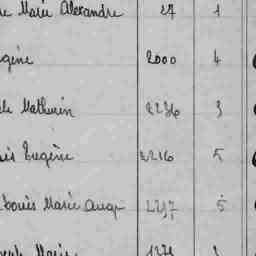 Marie Alexandre 27 1
gène 2000 4
Mathurin 2236 3
Eugène 2216 5
Louis Marie Aug 2217 5
Marie